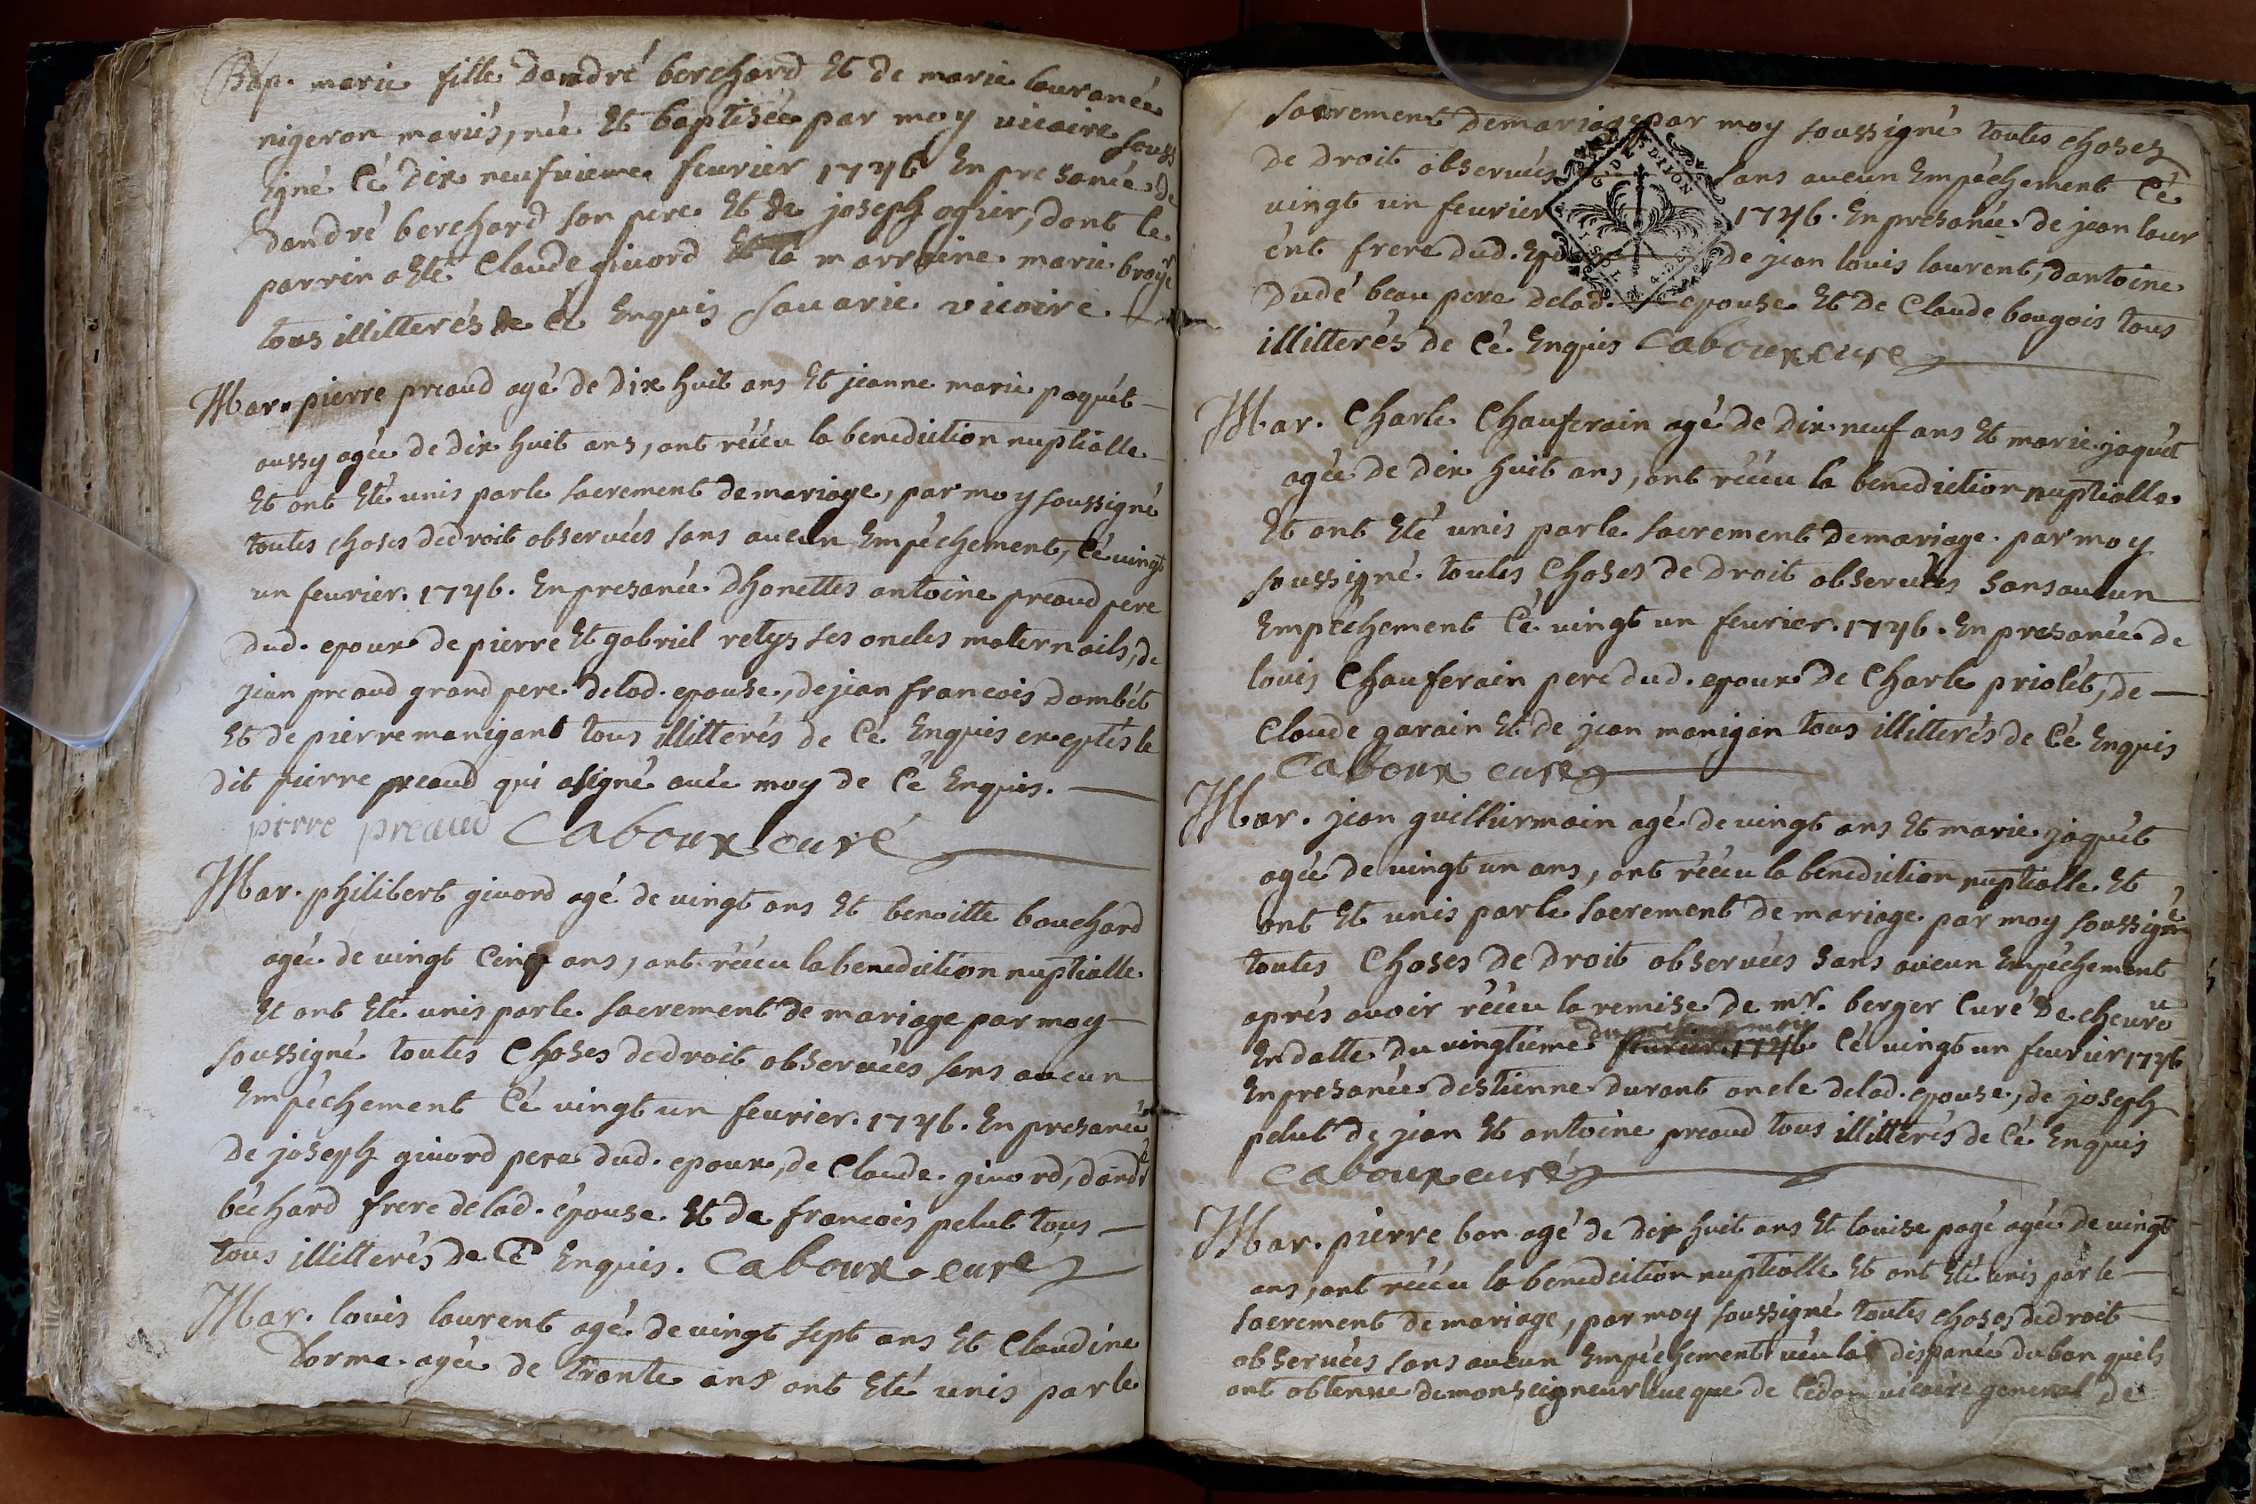 Bap. marie fille dandré berchard Et de marie lourancée
nigeron mariés, née Et baptisée par moy vicaire souss
igné Cé dix neufvieme feurier 1746 En presancée de
dandré berchard son pere Et de joseph ogier, dont le
parrin a Eté Claude giuord Et la marraine marie broye
tous illitterés de Cé Enquis Sauarie vicaire
Mar. pierre preaud agé de dix huit ans Et jeanne marie paquét
aussy agée de dix huit ans, ont réceu la benediction nuptialle
Et ont Eté unis par le sacrement de mariage, par moy soussigné
toutes choses de droit obseruées sans aucun Empéchement, Cé vingt
un feurier. 1746. En presancée dhonettes antoine preaud pere
dud. epoux de pierre Et gabriel retys ses oncles maternails, de
jean preaud grand pere delad. epouse, de jean francois dombét
Et de pierre manigant tous illitterés de Cé Enquis exceptés le
dit pierre preaud qui a signé auéc moy de Cé Enquis.
pirre preaud Caboux curé
Mar. philibert giuord agé de vingt ans Et benoitte bouchard
agée de vingt Cinq ans, ont réceu la benediction nuptialle
Et ont Eté unis par le sacrement de mariage par moy
soussigné toutes Choses de droit obseruées sans aucun
Empéchement Cé vingt un feurier. 1746. En presancée
de joseph giuord pere dud. epoux, de Claude giuord, dandré
béchard frere delad. épouse Et de francois pelut tous
tous illitterés de Cé Enquis. Caboux curé
Mar. louis lourent agé de vingt sept ans Et Claudine
dorme agée de trante ans ont Eté unis par le
sacrement de mariage par moy soussigné toutes choses
de droit obseruées sans aucun Empéchement Cé
vingt un feurier 1746. En presancée de jean lour
ént frere dud. Epoux de jean louis lourent, dantoine
dudé beau pere delad. epouse Et de Claude bougois tous
illitterés de Cé Enquis Caboux curé
Mar. Charle Chauferain agé de dix neuf ans Et marie jaquét
agée de dix huit ans, ont réceu la benediction nuptialle
Et ont Eté unis par le sacrement de mariage par moy
soussigné toutes Choses de droit obseruées sans aucun
Empéchement Cé vingt un feurier. 1746. En presancée de
louis Chauferain pere dud. epoux de Charle priolét, de
Claude garain Et de jean manigan tous illitterés de Cé Enquis
Caboux curé
Mar. jean guilliermain agé de vingt ans Et marie jaquét
agée de vingt un ans, ont réceu la benediction nuptialle Et
ont Et unis par le sacrement de mariage par moy soussigné
toutes Choses de droit obseruées sans aucun Empéchement
aprés auoir réceu la remise de mr. berger Curé de cheuru
En datte du vingtieme feurier 1746 Cé vingt un feurier 1746
En presancée destienne durant oncle delad. epouse, de joseph
pelut de jean Et antoine preaud tous illitterés de Cé Enquis
Caboux curé
Mar. pierre bon agé de dix huit ans Et louise pagé agée de vingt
ans, ont réceu la benediction nuptialle Et ont Eté unis par le
sacrement de mariage, par moy soussigné toutes choses de droit
obseruées sans aucun Empéchement veu la dispancée du ban quils
ont obtenue de monseigneur leueque de vicaire general de